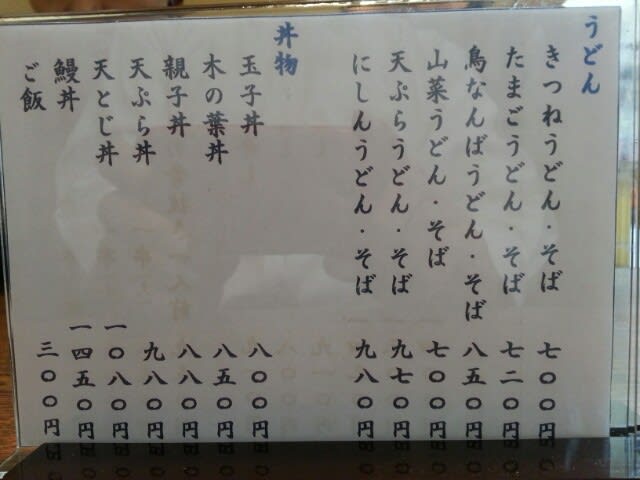 うどん
きつねうどん・そば 七〇〇円
たまごうどん・そば 七二〇円
鳥なんばうどん・そば 八五〇円
山菜うどん・そば 七〇〇円
天ぷらうどん・そば 九七〇円
にしんうどん・そば 九八〇円
丼物
玉子丼 八〇〇円
木の葉丼 八五〇円
親子丼 八八〇円
天ぷら丼 九八〇円
天とじ丼 一〇八〇円
鰻丼 一四五〇円
ご飯 三〇〇円